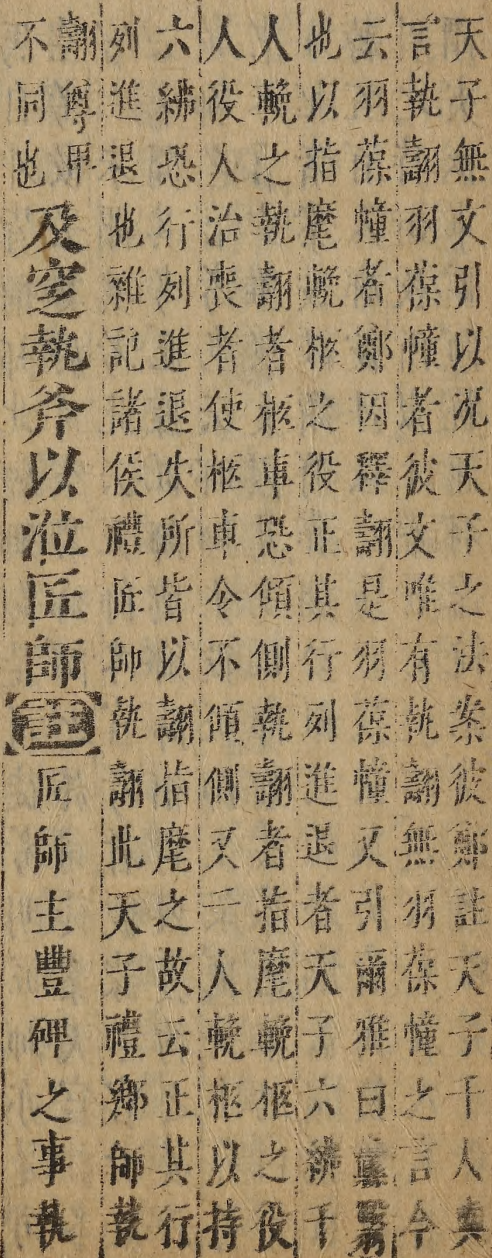 天子無文引以况天子之法案彼鄭註天子千人與
言執翿羽葆幢者彼文唯有執翿無羽葆幢之言今
云羽葆幢者鄭因釋翿是羽葆幢又引爾雅曰纛翳
也以指麾輓柩之役正其行列進退者天子六紼千
人輓之執翿者柩車恐傾側執翿者指麾輓柩之役
人役人治喪者使柩車令不傾側又千人輓柩以持
六紼恐行列進退失所皆以翿指麾之故云正其行
列進退也雜記諸侯禮匠師執翿此天子禮鄉師執
翿尊卑
不同也
及窆執斧以涖匠師註匠師主豐碑之事執